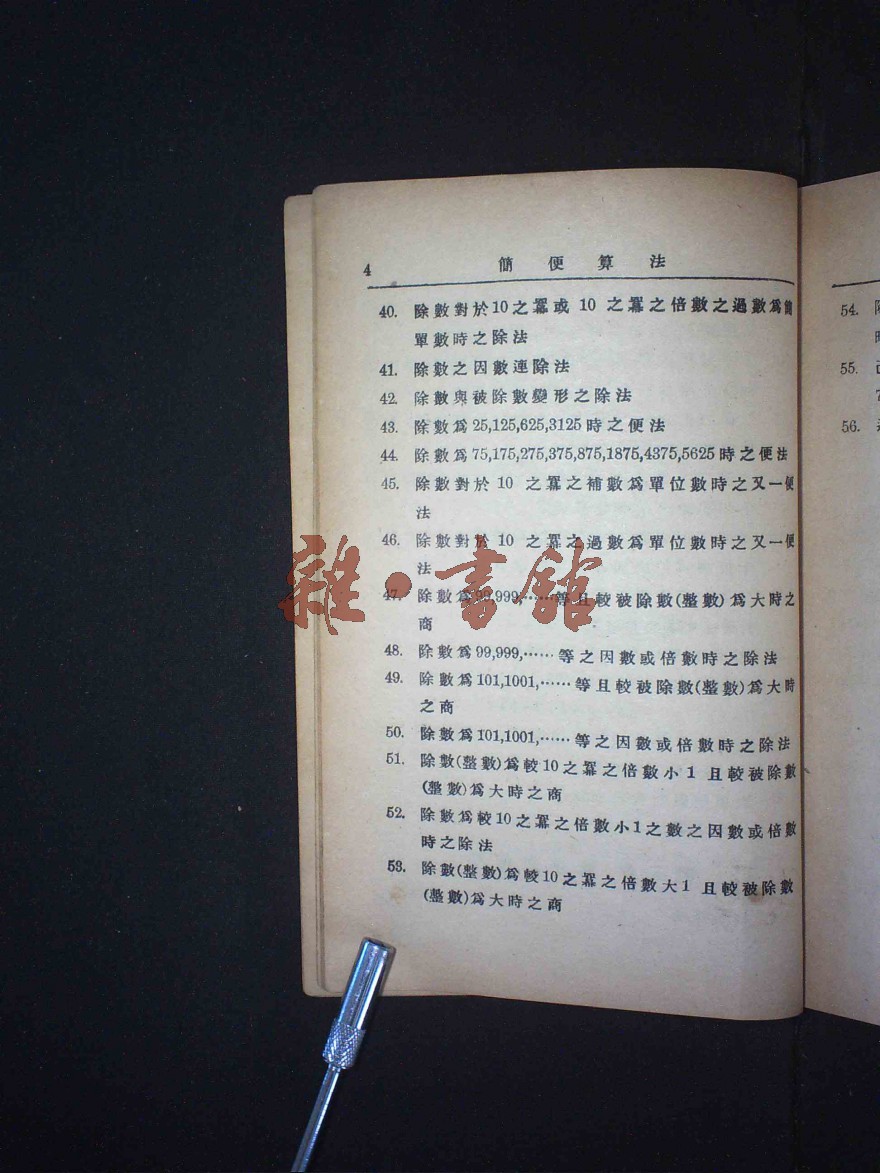 4 簡便算法
40. 除數對於10之冪或 10 之冪之倍數之過數爲簡
單數時之除法
41. 除數之因數連除法
42. 除數與被除數變形之除法
43. 除數爲25,125,625,3125時之便法
44. 除數爲75,175,275,375,875,1875,4375,5625時之便法
45. 除數對於 10 之冪之補數爲單位數時之又一便
法
46. 除數對於 10 之冪之過數爲單位數時之又一便
法
47. 除數爲99,999,……等且較被除數(整數)爲大時之
商
48. 除數爲99,999,……等之因數或倍數時之除法
49. 除數爲101,1001,……等且較被除數(整數)爲大時
之商
50. 除數爲101,1001,……等之因數或倍數時之除法
51. 除數(整數)爲較10之冪之倍數小1 且較被除數
(整數)爲大時之商
52. 除數爲較10之冪之倍數小1之數之因數或倍數
時之除法
53. 除數(整數)爲較10之冪之倍數大1 且較被除數
(整數)爲大時之商
54.
55.
56.
雜·書館